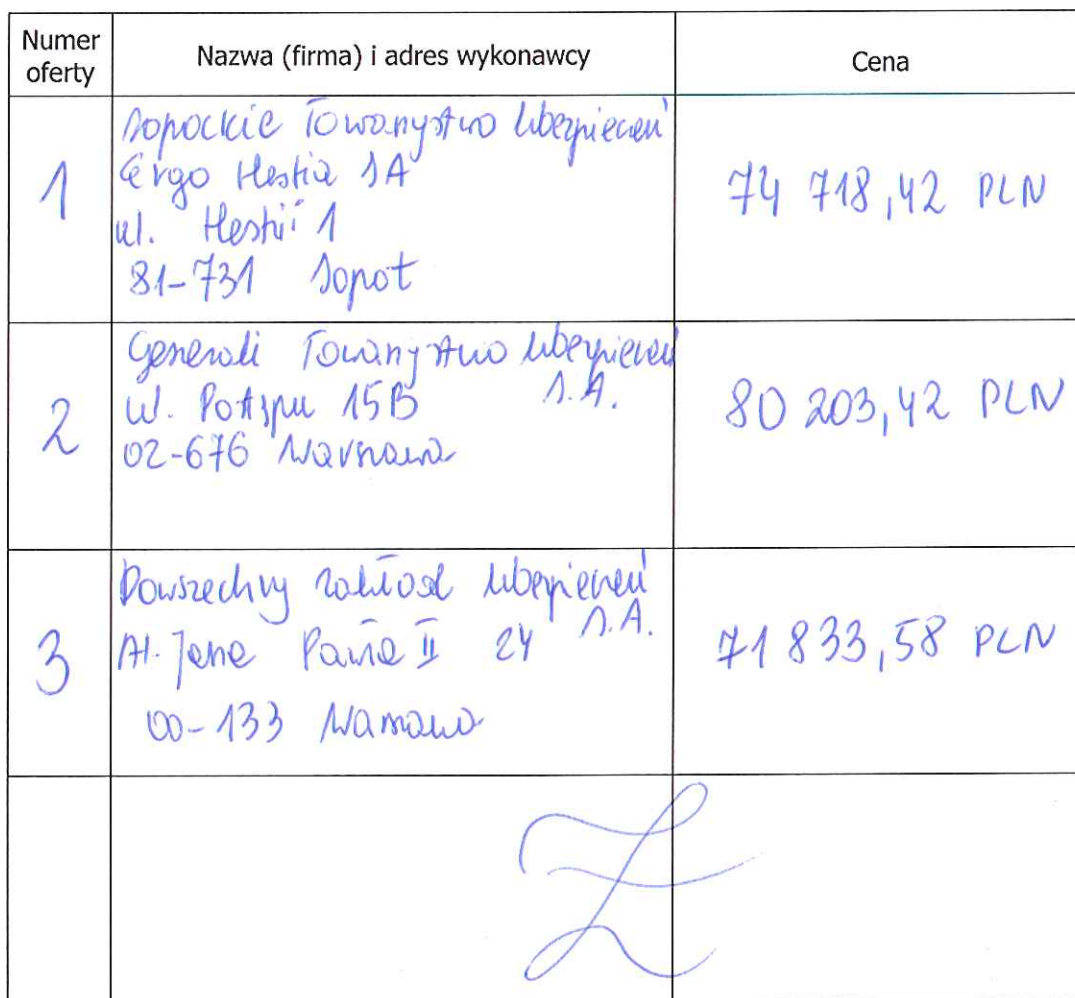 Numer oferty
Nazwa (firma) i adres wykonawcy
Cena
1
Sopockie Towarzystwo Ubezpieczeń
Ergo Hestia SA
ul. Hestii 1
81-731 Sopot
74 718,42 PLN
2
Generali Towarzystwo Ubezpieczeń
S.A.
ul. Postępu 15B
02-676 Warszawa
80 203,42 PLN
3
Powszechny Zakład Ubezpieczeń
S.A.
Al. Jana Pawła II 24
00-133 Warszawa
71 833,58 PLN